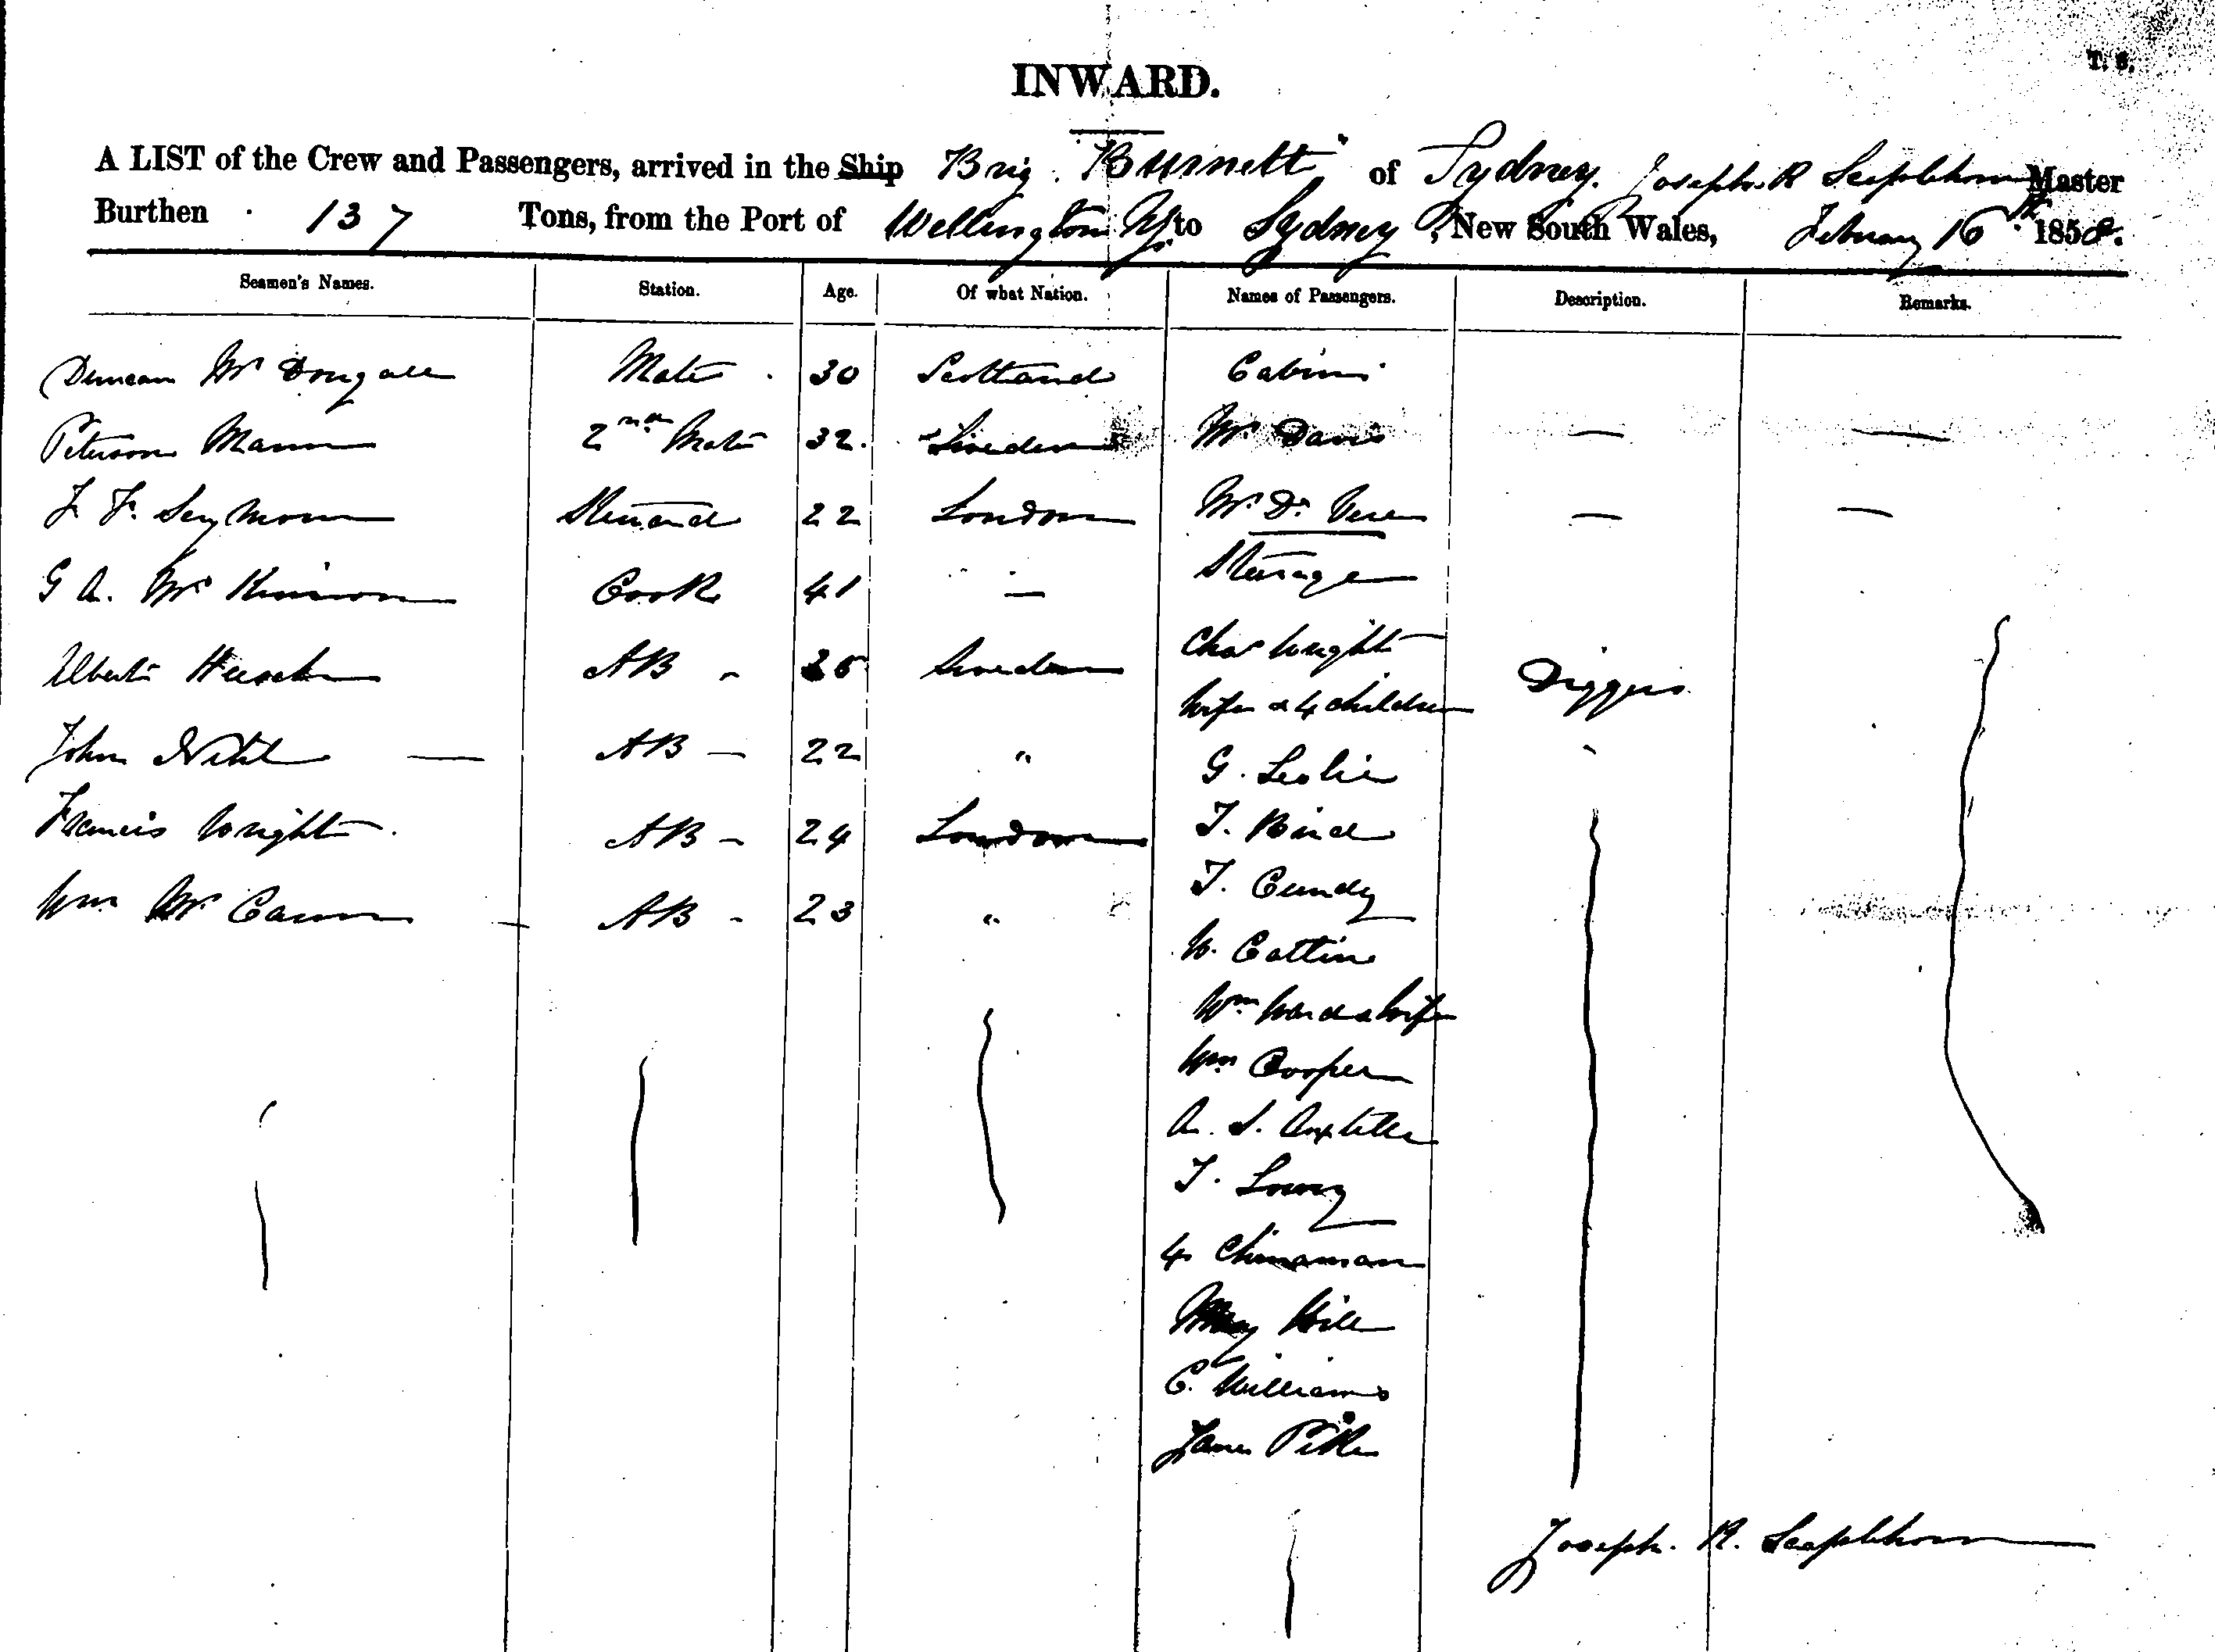 T. S.
INWARD.
A LIST of the Crew and Passengers, arrived in the Ship Brig "Burnett" of Sydney. Joseph R Scaplehorn Master
Burthen 137 Tons, from the Port of Wellington NZ to Sydney, New South Wales, February 16th 1858.
Seamen's Names. Station. Age. Of what Nation. Names of Passengers. Description. Remarks.
Duncan Mc Dougall Mate 30 Scotland Cabin
Peterson Mann 2nd Mate 32. Sweden Mr Davis — —
F. Seymour Steward 22 London Mr De Vere — —
G A. Mc Kinnon Cook 41 — Steerage
Albert AB - 26 Sweden Chas Wright Diggers
wife & 4 children
John AB — 22 " G. Leslie
Francis Wright AB - 24 London T. Bird
T. Cundy
Wm Mc Cann AB - 23 "
W. Cattin
Wm Ward & wife
Wm Cooper
A. S.
T. Lowry
4 Chinaman
Mary Hill
C. Williams
Jane Pike
Joseph. R. Scaplehorn